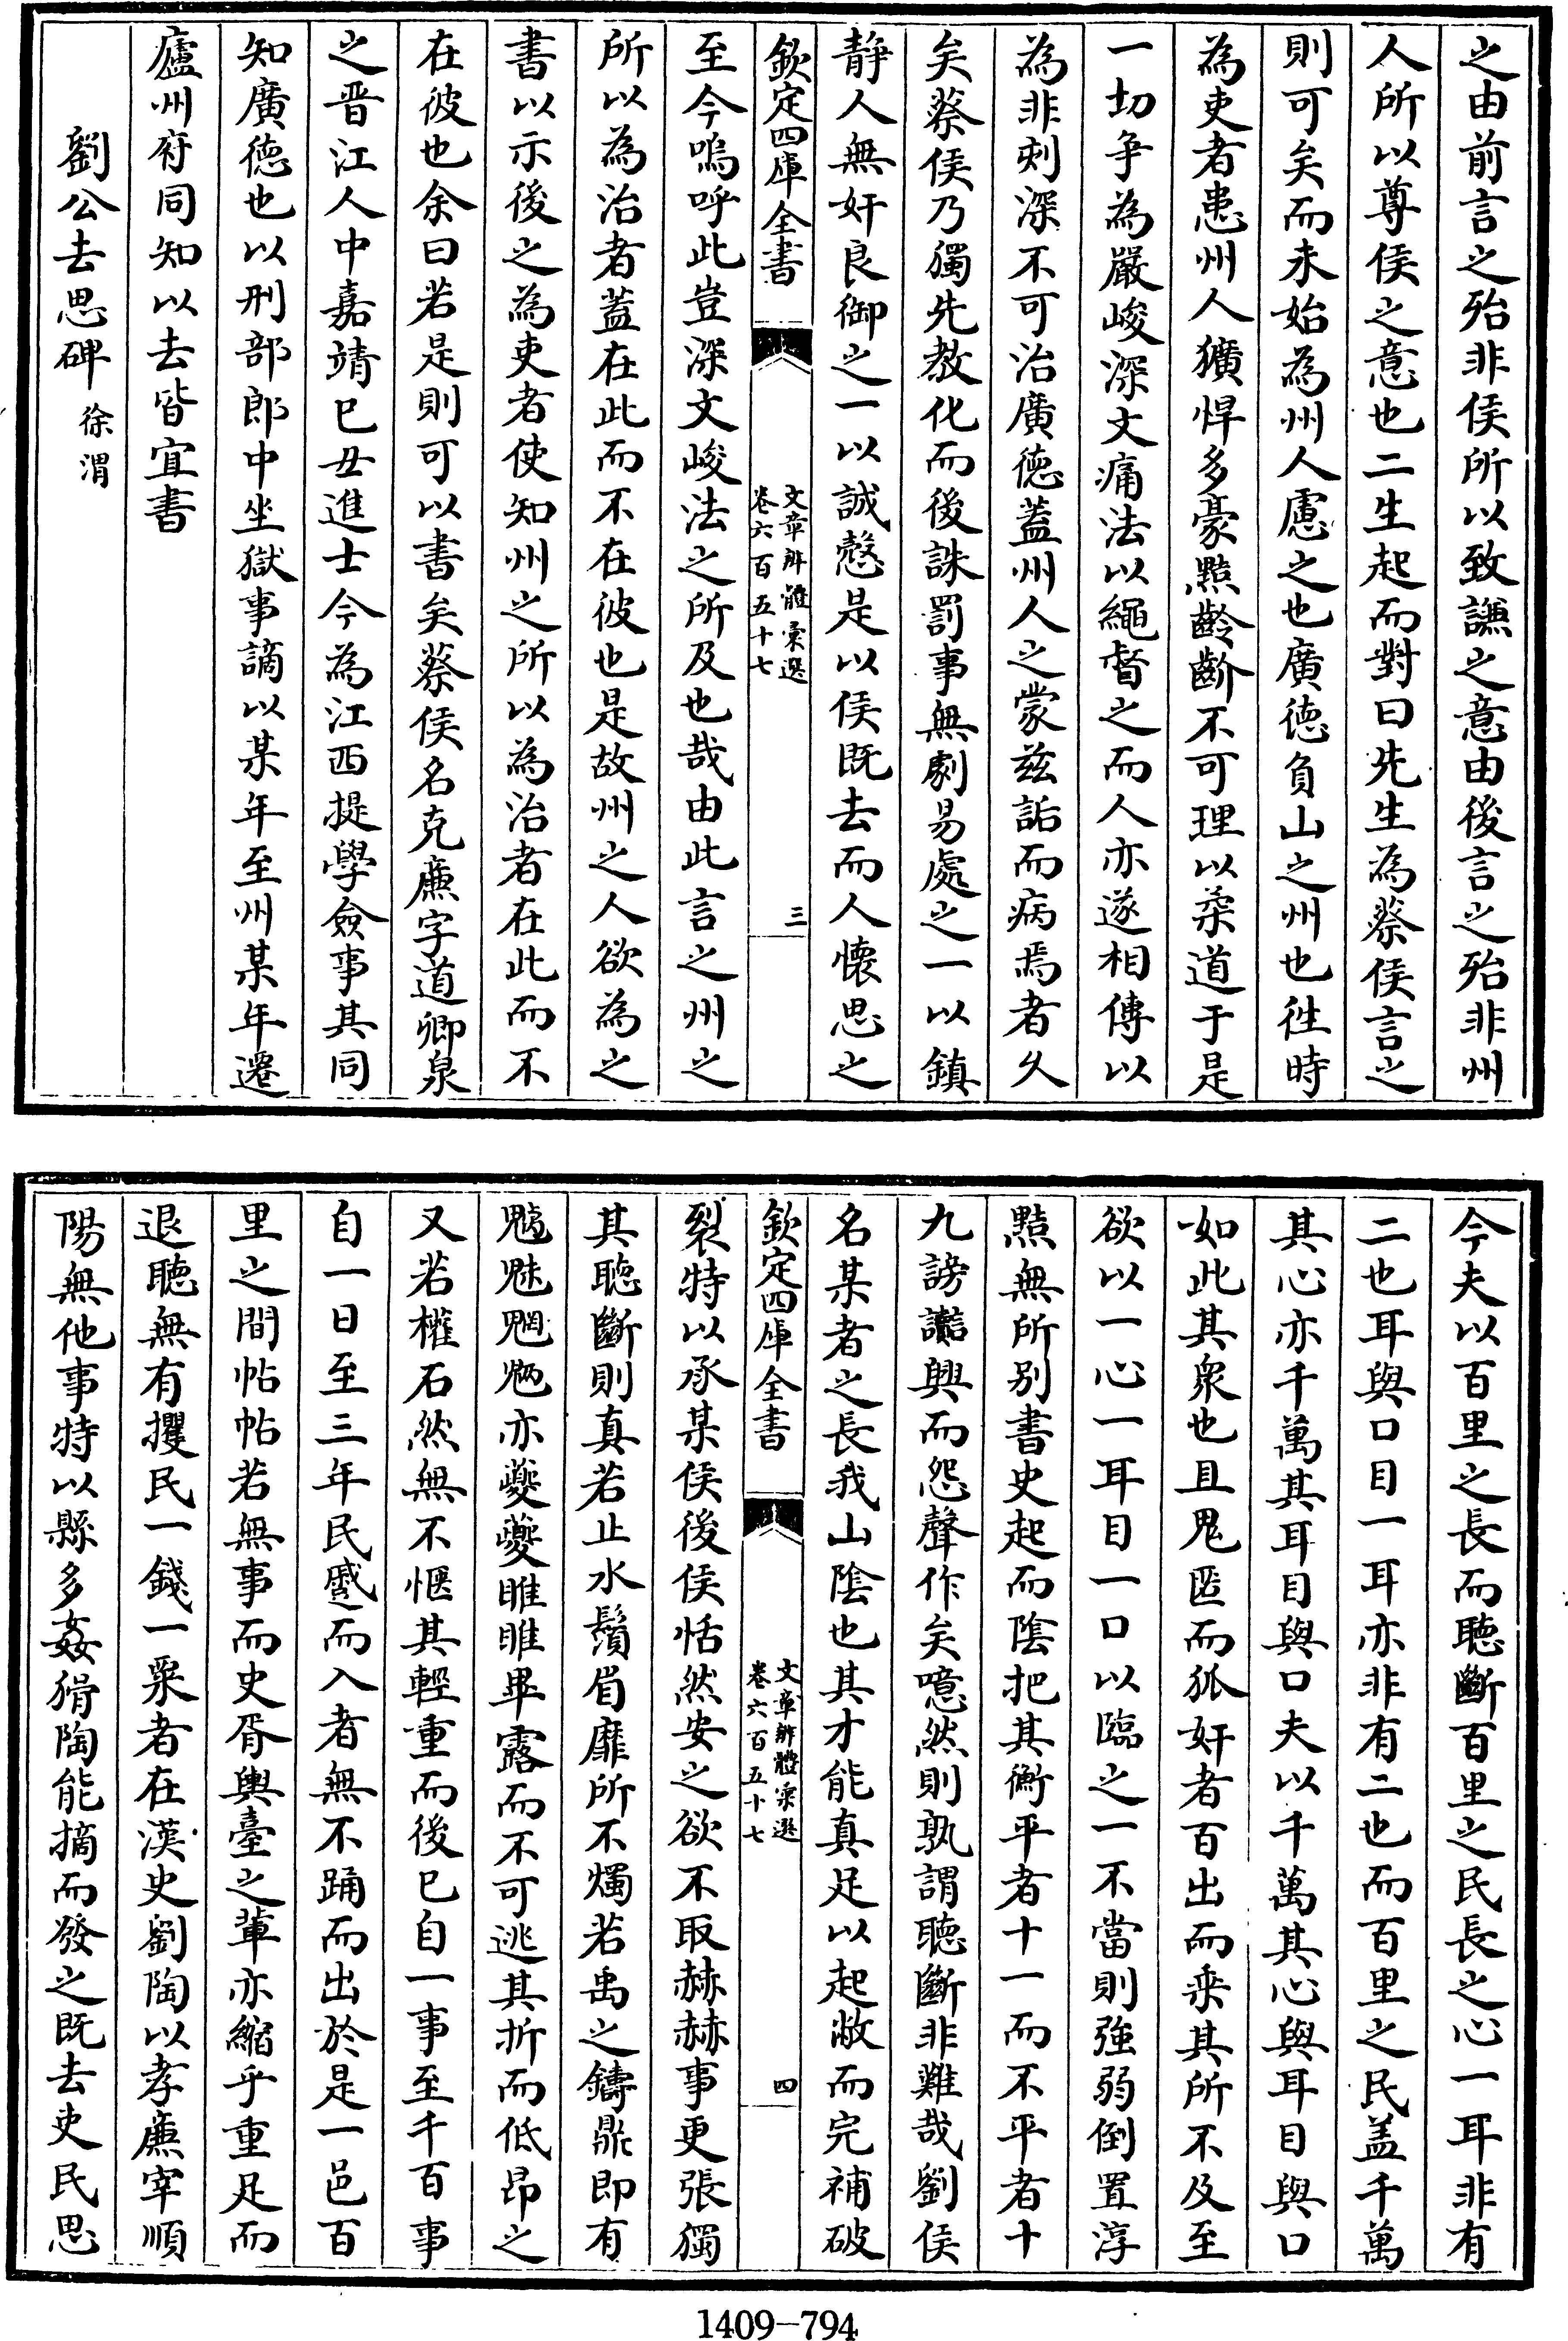 之由前言之殆非侯所以致謙之意由後言之殆非州
人所以尊侯之意也二生起而對曰先生為蔡侯言之
則可矣而未始為州人慮之也廣德負山之州也徃時
為吏者患州人獷悍多豪黠齮齗不可理以柔道于是
一切爭為嚴峻深文痛法以繩督之而人亦遂相傳以
為非刺深不可治廣德蓋州人之蒙茲詬而病焉者久
矣蔡侯乃獨先教化而後誅罰事無劇易處之一以鎮
静人無奸良御之一以誠慤是以侯既去而人懷思之
欽定四庫全書
文章辨體彙選
卷六百五十七
三
至今嗚呼此豈深文峻法之所及也哉由此言之州之
所以為治者蓋在此而不在彼也是故州之人欲為之
書以示後之為吏者使知州之所以為治者在此而不
在彼也余曰若是則可以書矣蔡侯名克廉字道卿泉
之晋江人中嘉靖己丑進士今為江西提學僉事其同
知廣德也以刑部郎中坐獄事謫以某年至州某年遷
廬州府同知以去皆宜書
劉公去思碑 徐渭
今夫以百里之長而聽斷百里之民長之心一耳非有
二也耳與口目一耳亦非有二也而百里之民盖千萬
其心亦千萬其耳目與口夫以千萬其心與耳目與口
如此其衆也且鬼匿而狐奸者百出而乘其所不及至
欲以一心一耳目一口以臨之一不當則強弱倒置淳
黠無所别書史起而陰把其衡平者十一而不平者十
九謗讟興而怨聲作矣噫然則孰謂聽斷非難哉劉侯
名某者之長我山陰也其才能真足以起敝而完補破
欽定四庫全書
文章辨體彙選
卷六百五十七
四
裂特以承某侯後侯恬然安之欲不取赫赫事更張獨
其聽斷則真若止水鬚眉靡所不燭若禹之鑄鼎即有
魑魅魍魎亦夔夔睢睢畢露而不可逃其折而低昂之
又若權石然無不愜其輕重而後已自一事至千百事
自一日至三年民蹙而入者無不踊而出於是一邑百
里之間帖帖若無事而史胥輿臺之輩亦縮乎重足而
退聽無有攫民一錢一粟者在漢史劉陶以孝廉宰順
陽無他事特以縣多姦猾陶能摘而發之既去吏民思
1409-794